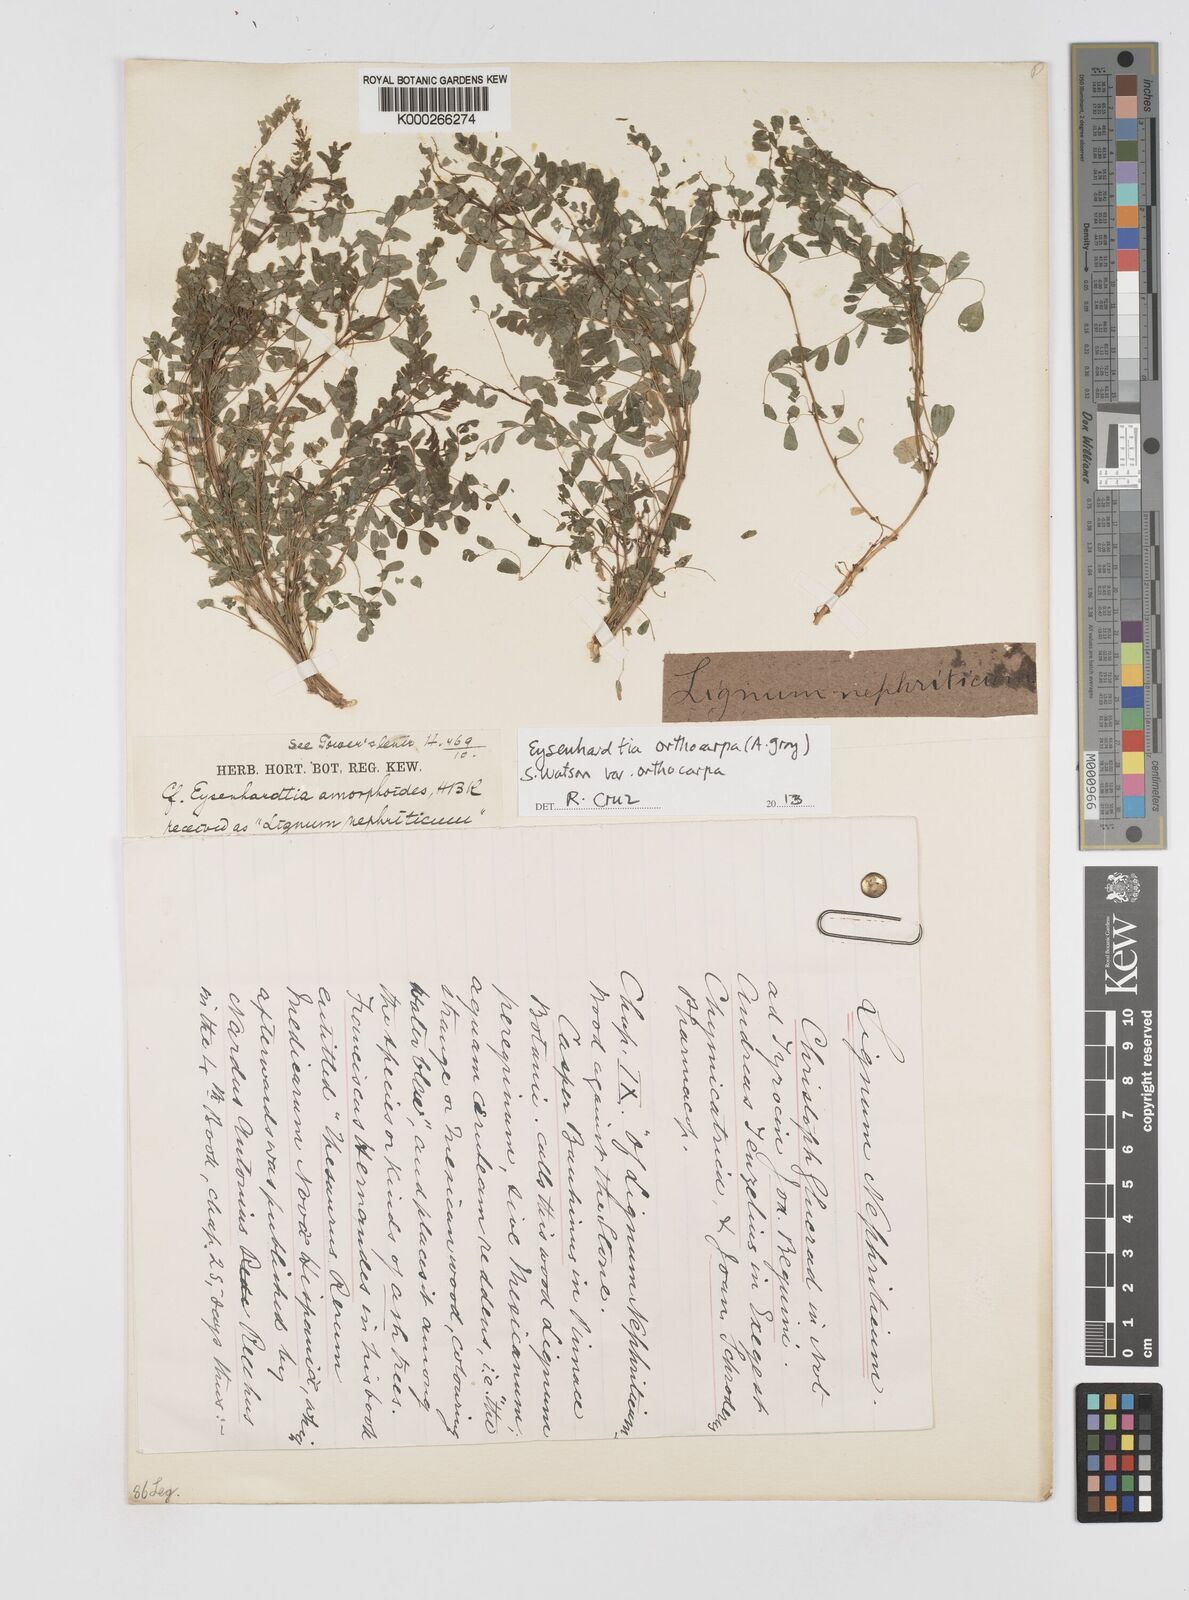 ROYAL BOTANIC GARDENS KEW
K000266274
Lignum nephriticum
See Power's letter H. 469/10.
HERB. HORT. BOT. REG. KEW.
Cf. Eysenhardtia amorphoides, HBK
received as "Lignum nephriticum"
Eysenhardtia orthocarpa (A. Gray)
S. Watson var. orthocarpa
DET. R. Cruz 2013
Lignum Nephriticum.
Christoph Glucrad in Not.
ad Tyrocin Joa. Beguini.
Andreas Tenzelius in Exeges
Chymicatrica, & Joan Schroder
Pharmacop.
Chap. IX. "Of Lignum Nephriticum
Wood against the Stone.
Casper Bauhinus in Pinnace
Botanic. calls this wood Lignum
peregrinum, sive Mexicanum;
aquam Cœruleam reddens, i.e. "the
strange or Mexican wood, colouring
water blue", and places it among
the species or kinds of ash trees.
Franciscus Hernandes in his book
entitled "Thesaurus Rerum
Medicarum Novæ Hispaniæ, whi
afterwards was published by
Nardus Antonius Recchus
in the 4th Book, chap. 25, says thus:-
86 Leg.
inches
Density
Don Williams
M000966
Kew
Royal Botanic Gardens
copyright reserved
0 1 2 3 4 5 6 7 8 9 10
cm